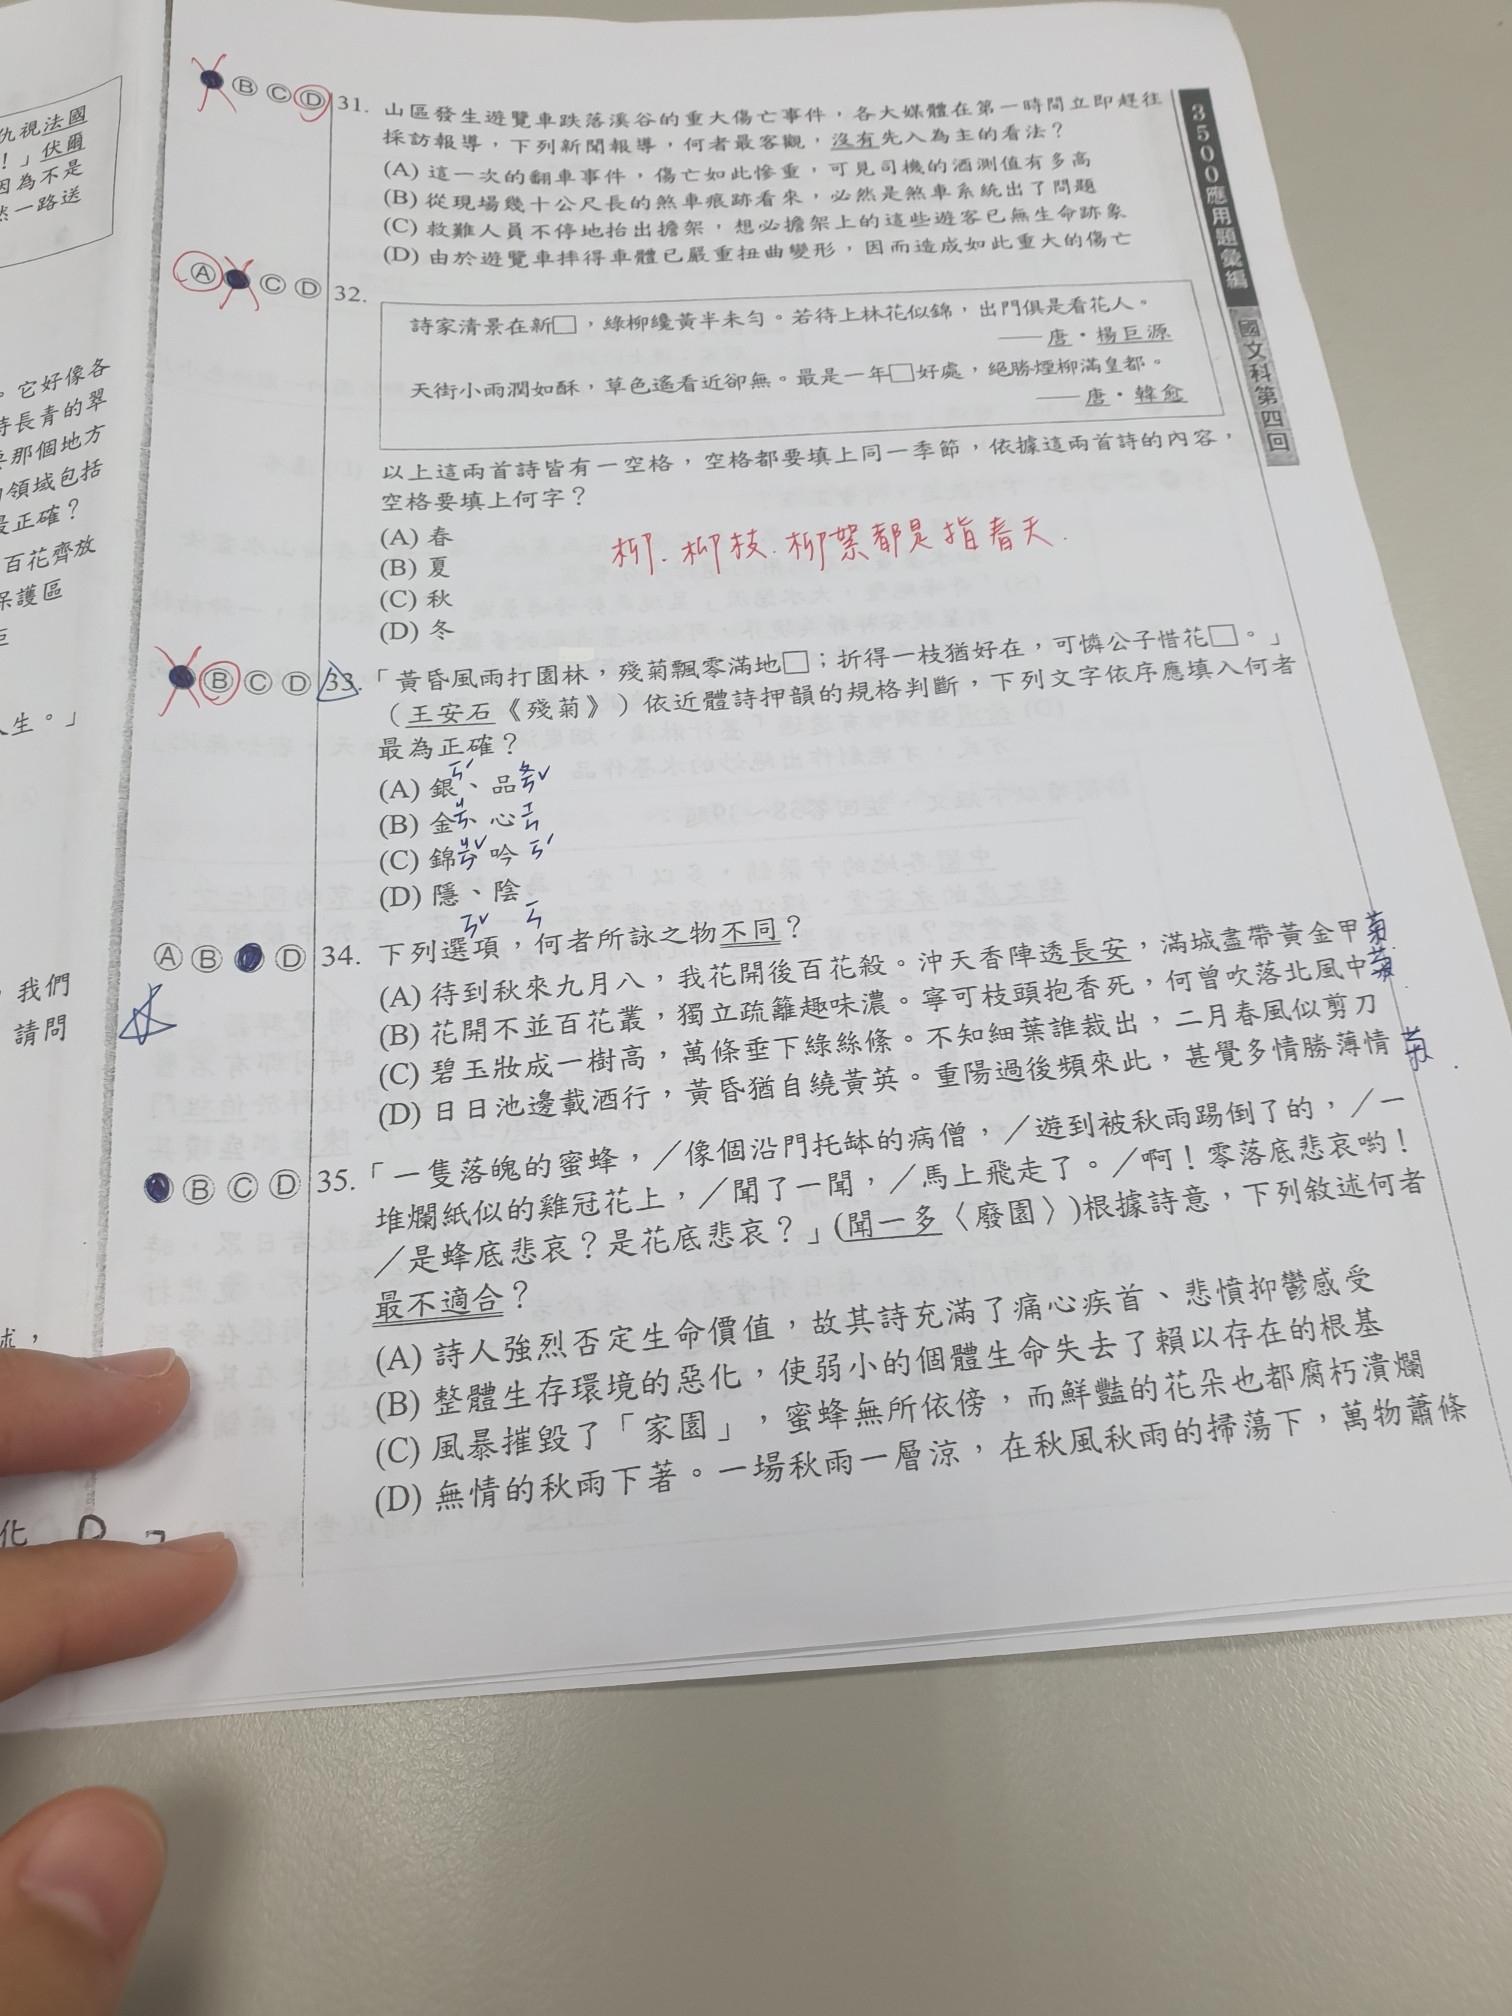 仇視法國
！」伏爾
因為不是
然一路送
。它好像各
時長青的翠
那個地方
領域包括
最正確？
百花齊放
保護區
人生。」
，我們
請問
述，
化
3500應用題彙編 國文科第四回
Ⓑ Ⓒ Ⓓ 31. 山區發生遊覽車跌落溪谷的重大傷亡事件，各大媒體在第一時間立即趕往
採訪報導，下列新聞報導，何者最客觀，沒有先入為主的看法？
(A) 這一次的翻車事件，傷亡如此慘重，可見司機的酒測值有多高
(B) 從現場幾十公尺長的煞車痕跡看來，必然是煞車系統出了問題
(C) 救難人員不停地抬出擔架，想必擔架上的這些遊客已無生命跡象
(D) 由於遊覽車摔得車體已嚴重扭曲變形，因而造成如此重大的傷亡
Ⓐ Ⓒ Ⓓ 32.
詩家清景在新□，綠柳纔黃半未勻。若待上林花似錦，出門俱是看花人。
——唐・楊巨源
天街小雨潤如酥，草色遙看近卻無。最是一年□好處，絕勝煙柳滿皇都。
——唐・韓愈
以上這兩首詩皆有一空格，空格都要填上同一季節，依據這兩首詩的內容，
空格要填上何字？
(A) 春
(B) 夏
(C) 秋
(D) 冬
柳、柳枝、柳絮都是指春天.
Ⓑ Ⓒ Ⓓ 33. 「黃昏風雨打園林，殘菊飄零滿地□；折得一枝猶好在，可憐公子惜花□。」
（王安石《殘菊》）依近體詩押韻的規格判斷，下列文字依序應填入何者
最為正確？
(A) 銀、品
(B) 金、心
(C) 錦、吟
(D) 隱、陰
Ⓐ Ⓑ Ⓓ 34. 下列選項，何者所詠之物不同？
(A) 待到秋來九月八，我花開後百花殺。沖天香陣透長安，滿城盡帶黃金甲 菊
(B) 花開不並百花叢，獨立疏籬趣味濃。寧可枝頭抱香死，何曾吹落北風中 菊
(C) 碧玉妝成一樹高，萬條垂下綠絲絛。不知細葉誰裁出，二月春風似剪刀
(D) 日日池邊載酒行，黃昏猶自繞黃英。重陽過後頻來此，甚覺多情勝薄情 菊
Ⓑ Ⓒ Ⓓ 35. 「一隻落魄的蜜蜂，／像個沿門托缽的病僧，／遊到被秋雨踢倒了的，／一
堆爛紙似的雞冠花上，／聞了一聞，／馬上飛走了。／啊！零落底悲哀喲！
／是蜂底悲哀？是花底悲哀？」(聞一多〈廢園〉)根據詩意，下列敘述何者
最不適合？
(A) 詩人強烈否定生命價值，故其詩充滿了痛心疾首、悲憤抑鬱感受
(B) 整體生存環境的惡化，使弱小的個體生命失去了賴以存在的根基
(C) 風暴摧毀了「家園」，蜜蜂無所依傍，而鮮豔的花朵也都腐朽潰爛
(D) 無情的秋雨下著。一場秋雨一層涼，在秋風秋雨的掃蕩下，萬物蕭條